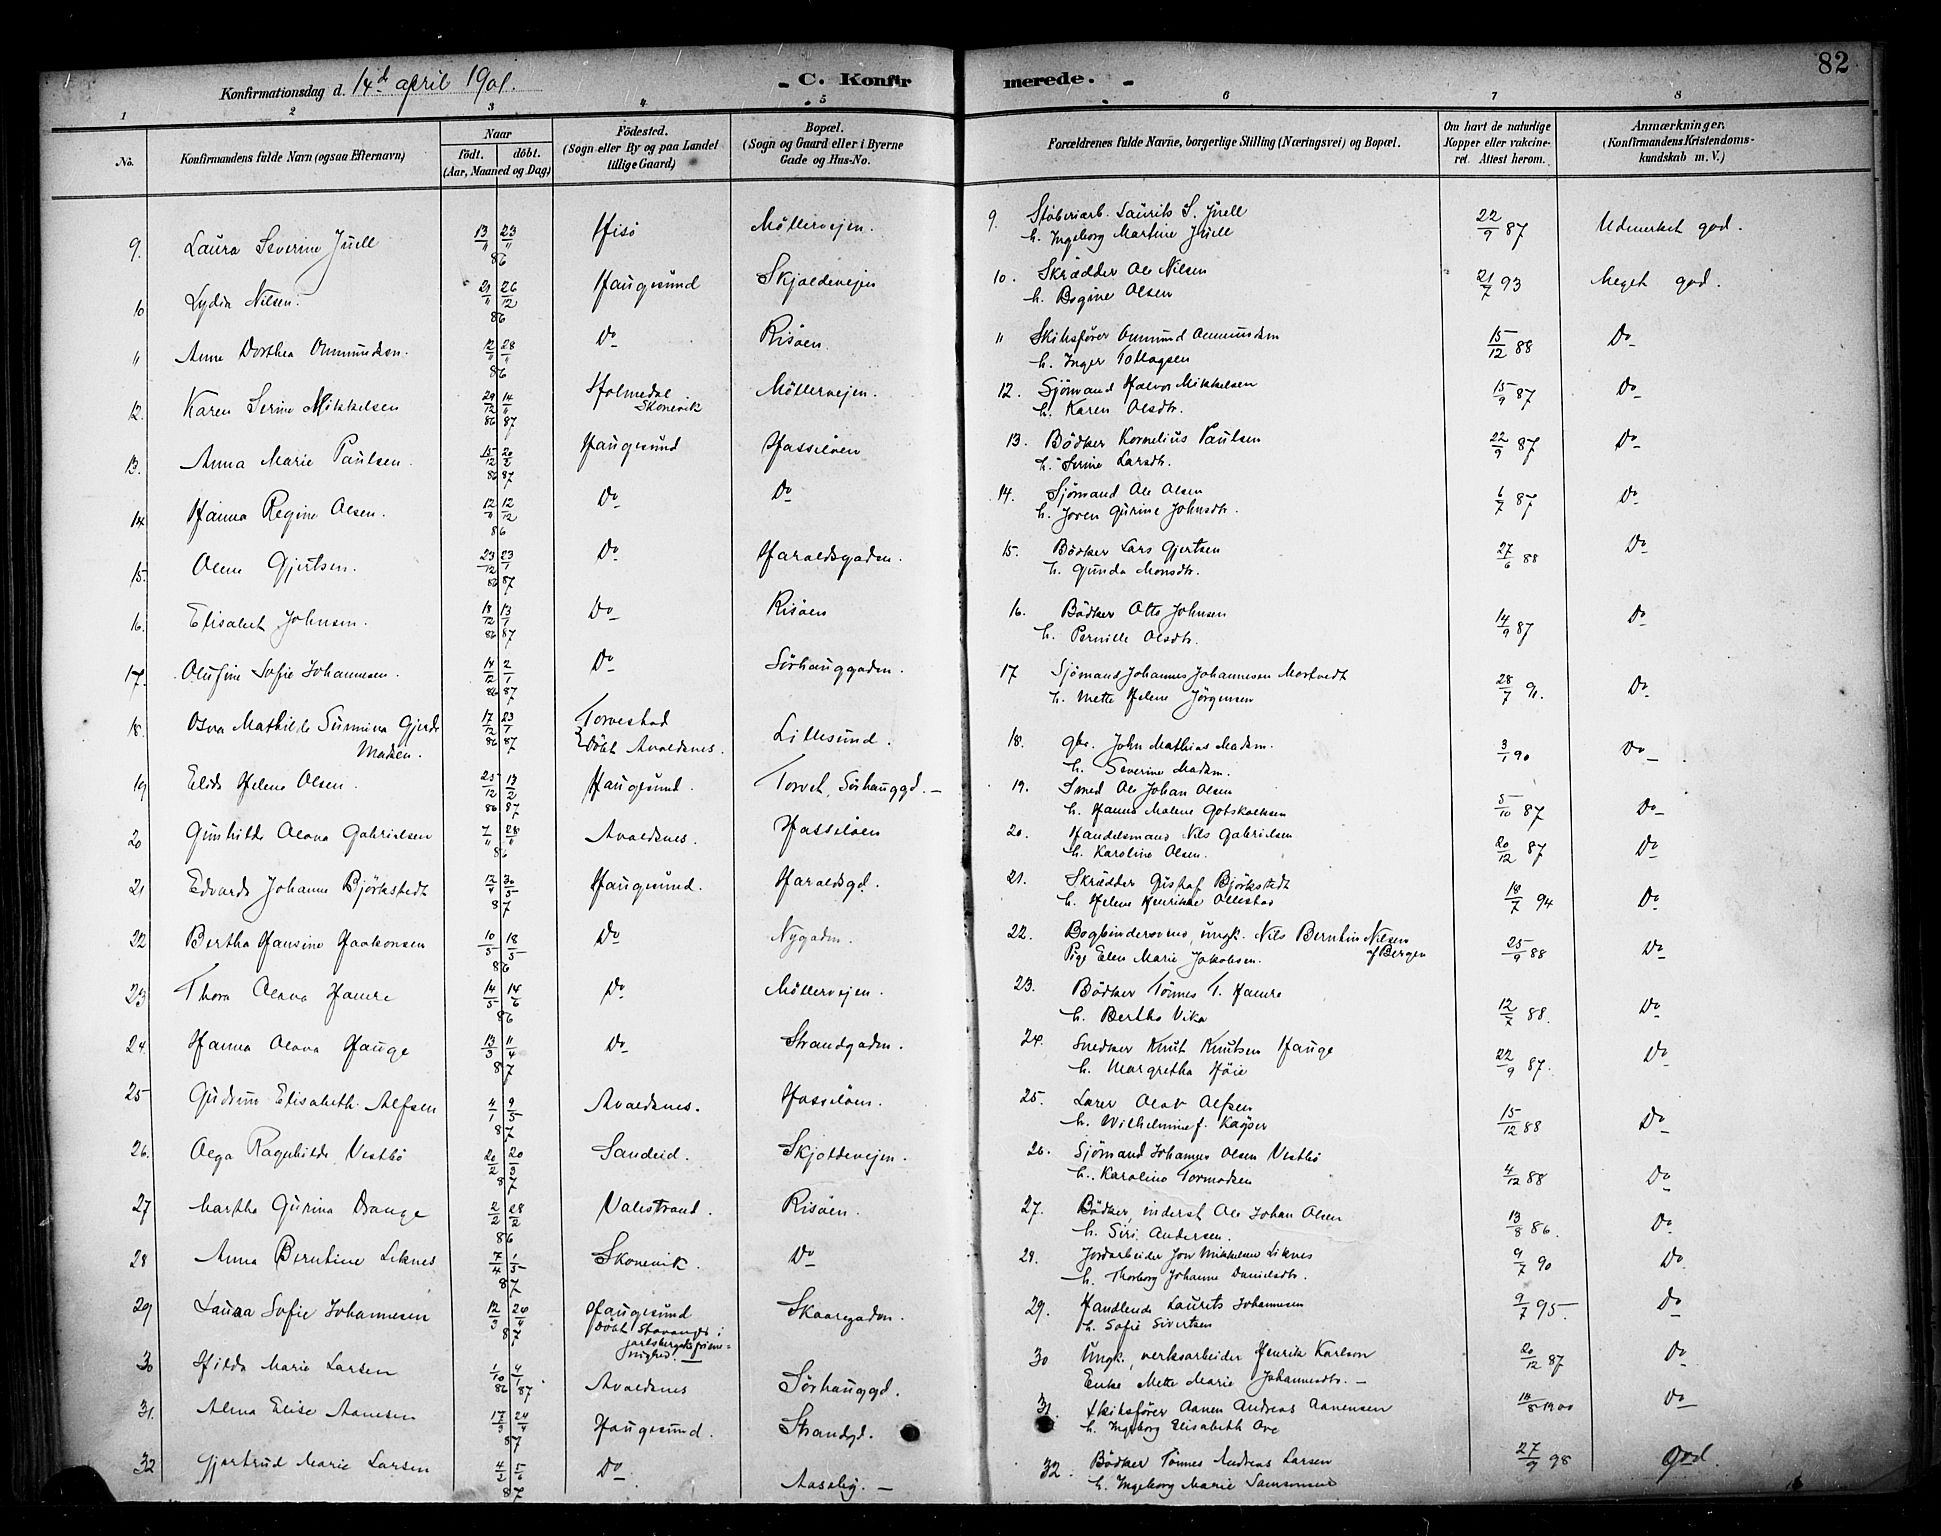 82
Konfirmationsdag d. 14d april 1901.
C. Konfirmerede.
1 2 3 4 5 6 7 8
No.
Konfirmandens fulde Navn (ogsaa Efternavn)
Naar
født. døbt.
(Aar, Maaned og Dag)
Fødested.
(Sogn eller By og paa Landet
tillige Gaard)
Bopæl.
(Sogn og Gaard eller i Byerne
Gade og Hus-No.
Forældrenes fulde Navne, borgerlige Stilling (Næringsvei) og Bopæl.
Om havt de naturlige
Kopper eller vakcine-
ret. Attest herom.
Anmærkninger.
(Konfirmandens Kristendoms-
kundskab m. V.)
9. Laura Severine Juell 13/11 23/11 86 Hisö Möllervejen. 9. Støberiarb. Laurits S. Juell 22/9 87 Udmerket god.
h. Ingeborg Martine Juell
10 Lydia Nilsen. 21/11 26/12 86 Haugesund Skjoldevejen 10. Skrædder Ole Nilsen 21/7 93 Meget god.
h. Bogine Olsen
11 Anne Dorthea Ommundsen. 12/11 28/11 86 Do Risöen. 11 Skibsfører Ommund Ommundsen 15/12 88 Do
h. Inger Tollagsen
12. Karen Serine Mikkelsen 29/12 86 14/11 87 Holmedal Skonevik Möllervejen. 12. Sjömand Halvor Mikkelsen 15/9 87 Do
h. Karen Olsdtr.
13. Anna Marie Paulsen. 15/12 86 20/2 87 Haugesund Hasselöen 13. Bödker Kornelius Paulsen 22/9 87 Do
h. Serine Larsdtr.
14 Hanna Regine Olsen. 12/11 12/12 86 Do Do 14. Sjömand Ole Olsen 6/7 87 Do
h. Joren Gurine Johnsdtr.
15. Olene Gjertsen. 23/12 86 23/1 87 Do Haraldsgaden. 15. Bödker Lars Gjertsen 27/6 88 Do
h. Gunda Monsdtr.
16. Elisabet Johnsen. 18/12 86 13/1 87 Do Risöen 16. Bödker Otto Johnsen 14/9 87 Do
h. Pernille Olsdtr.
17. Olufine Sofie Johannesen. 14/12 86 2/1 87 Do Sörhauggaden. 17 Sjömand Johannes Johannesen Mortvedt 28/7 91. Do
h. Mette Helene Jörgensen
18. Mathilde Sunniva Gjerde 17/12 86 23/1 87 Torvestad Lillesund. 18. John Mathias Madsen. 3/1 90 Do
Madsen. Döbt Avaldsnes. h. Severine Madsen.
19 Elida Helene Olsen. 25/12 86 13/2 87 Haugesund. Torvet, Sörhauggd. 19. Smed Ole Johan Olsen 5/10 87 Do
h. Hanne Malene Gotskalksen
20 Gunhilde Olava Gabrielsen 7/11 28/11 86 Avaldsnes. Hasselöen 20. Handelsmand Nils Gabrielsen 20/12 87 Do
h. Karoline Olsen.
21 Edvarda Johanne Björkstedt 12/4 30/5 87 Haugesund. Haraldsgd. 21. Skrædder Gustaf Björkstedt 18/7 94 Do
h. Helene Henrikke Ollestad
22 Bertha Hansine Haakonsen 10/5 18/5 86 Do Nygaden. 22. Bogbindersvend, ungk. Nils Berntin Nilsen 25/9 88 Do
Pige Elen Marie Jakobsen. af Bergen
23 Thora Olava Hamre 14/5 14/6 86 Do Möllervejen. 23. Bödker Tönnes T. Hamre 12/7 88. Do
h. Bertha Vika
24. Hanna Olava Hauge 13/3 11/4 87 Do Strandgaden. 24. Snedker Knut Knutsen Hauge 22/9 87. Do
h. Margretha Höie
25 Gudrun Elisabeth Alfsen 4/1 9/5 87 Avaldsnes. Hasselöen. 25. Lærer Olav Alfsen 15/12 88 Do
h. Wilhelmine f. Kayser
26. Olga Ragnhilde Vestbö 20/2 20/3 87 Sandeid. Skjoldevejen. 26. Sjömand Johannes Olsen Vestbö 4/12 88 Do
h. Karoline Tormodsen
27 Martha Gurina Drange 2/2 28/2 86 Valestrand. Risöen. 27. Bödker, inderst Ole Johan Olsen 13/8 86. Do
h. Siri Andersen.
28 Anna Berntine Liknes 7/4 1/5 87 Skonevik. Do 28. Jordarbeider Jon Mikkelsen Liknes 9/7 90 Do.
h. Thorborg Johanne Danielsdtr.
29 Laura Sofie Johannesen 12/3 26/4 87 Haugesund Skaaregaden. 29. Handlende Laurits Johannesen 9/7 95 Do
Döbt Stavanger i h. Sofie Sivertsen
30 Hilda Marie Larsen 1/10 86 4/1 87 Avaldsnes Sörhauggd. 30 Ungk., verksarbeider Henrik Karlson 20/12 87 Do
Enke Mette Marie Johannesdtr.
31. Alma Elise Aanesen 17/3 24/4 87 Haugesund. Strandgd. 31. Skibsfører Aanen Andreas Aanensen 18/8 1900 Do
h. Ingeborg Elisabeth Ove
32 Gjertrud Marie Larsen 4/2 5/6 87 Do Aaselig. 32. Bödker Tönnes Andreas Larsen 27/9 98 god.
h. Ingeborg Marie Samsonsen